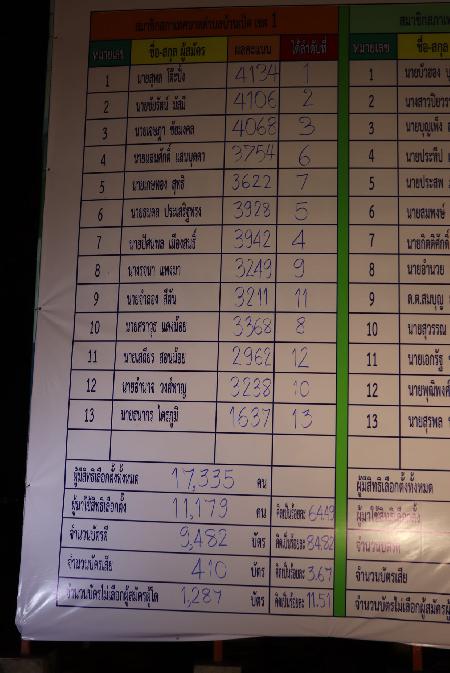 สมาชิกสภาเทศบาลตำบลบ้านเป็ด เขต 1
หมายเลข ชื่อ-สกุล ผู้สมัคร ผลคะแนน ได้ลำดับที่
1 นายสุพล 4134 1
2 นายชัยรัตน์ 4106 2
3 นายเจษฎา ชัยมงคล 4068 3
4 แสนบุดดา 3754 6
5 นายเกษทอง สุทธิ 3622 7
6 นายธนดล ประเสริฐทรง 3928 5
7 เมืองสนธิ์ 3942 4
8 นางรจนา 3249 9
9 นายจำลอง สีตัน 3211 11
10 นายศราวุธ แดงน้อย 3368 8
11 นายเสถียร สอนน้อย 2962 12
12 นายอำนาจ วงศ์หาญ 3238 10
13 นายธนากร โคตรภูมิ 1637 13
ผู้มีสิทธิเลือกตั้งทั้งหมด 17,335 คน
ผู้มาใช้สิทธิเลือกตั้ง 11,179 คน คิดเป็นร้อยละ 64.49
จำนวนบัตรดี 9,482 บัตร คิดเป็นร้อยละ 84.82
จำนวนบัตรเสีย 410 บัตร คิดเป็นร้อยละ 3.67
จำนวนบัตรไม่เลือกผู้สมัครผู้ใด 1,287 บัตร คิดเป็นร้อยละ 11.51
สมาชิกสภาเท
หมายเลข ชื่อ-สกุ
1 นายบัวลอง
2 นางสาวปิยวร
3 นายบุญเพ็ง
4 นายประทีป
5 นายประสพ
6 นายสมพงษ์
7 นายกิตติศักดิ์
8 นายอำนวย
9 ด.ต.สมบุญ
10 นายสุวรรณ
11 นายเอกรัฐ
12 นายพุฒิพงศ์
13 นายสุรพล
ผู้มีสิทธิเลือกตั้งทั้งหมด
ผู้มาใช้สิทธิเลือกตั้ง
จำนวนบัตรดี
จำนวนบัตรเสีย
จำนวนบัตรไม่เลือกผู้สมัคร